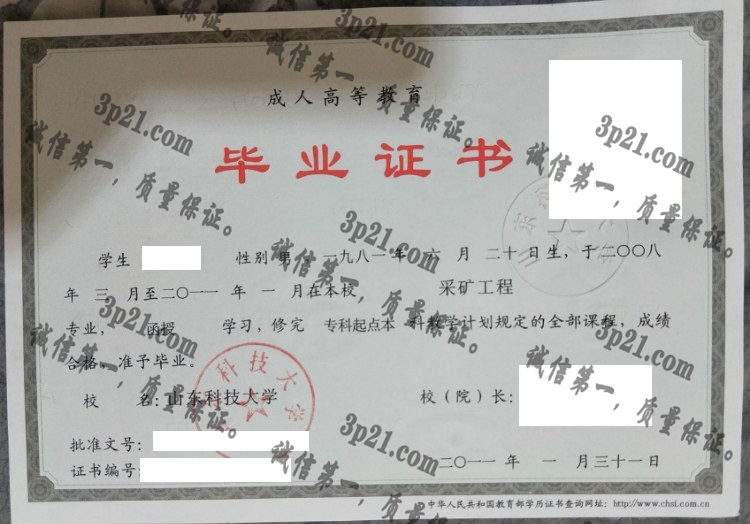 成人高等教育
毕业证书
学生 性别 男，一九八一年 六 月 二十日生，于二〇〇八
年 三 月至二〇一一 年 一 月在本校 采矿工程
专业， 函授 学习，修完 专科起点本 科教学计划规定的全部课程，成绩
合格，准予毕业。
校 名：山东科技大学 校（院）长：
批准文号：
证书编号： 二〇一一 年 一 月三十一日
中华人民共和国教育部学历证书查询网址：http://www.chsi.com.cn
科技大学
3p21.com
诚信第一，质量保证。
3p21.com
诚信第一，质量保证。
3p21.com
诚信第一，质量保证。
3p21.com
诚信第一，质量保证。
3p21.com
诚信第一，质量保证。
3p21.com
诚信第一，质量保证。
3p21.com
诚信第一，质量保证。